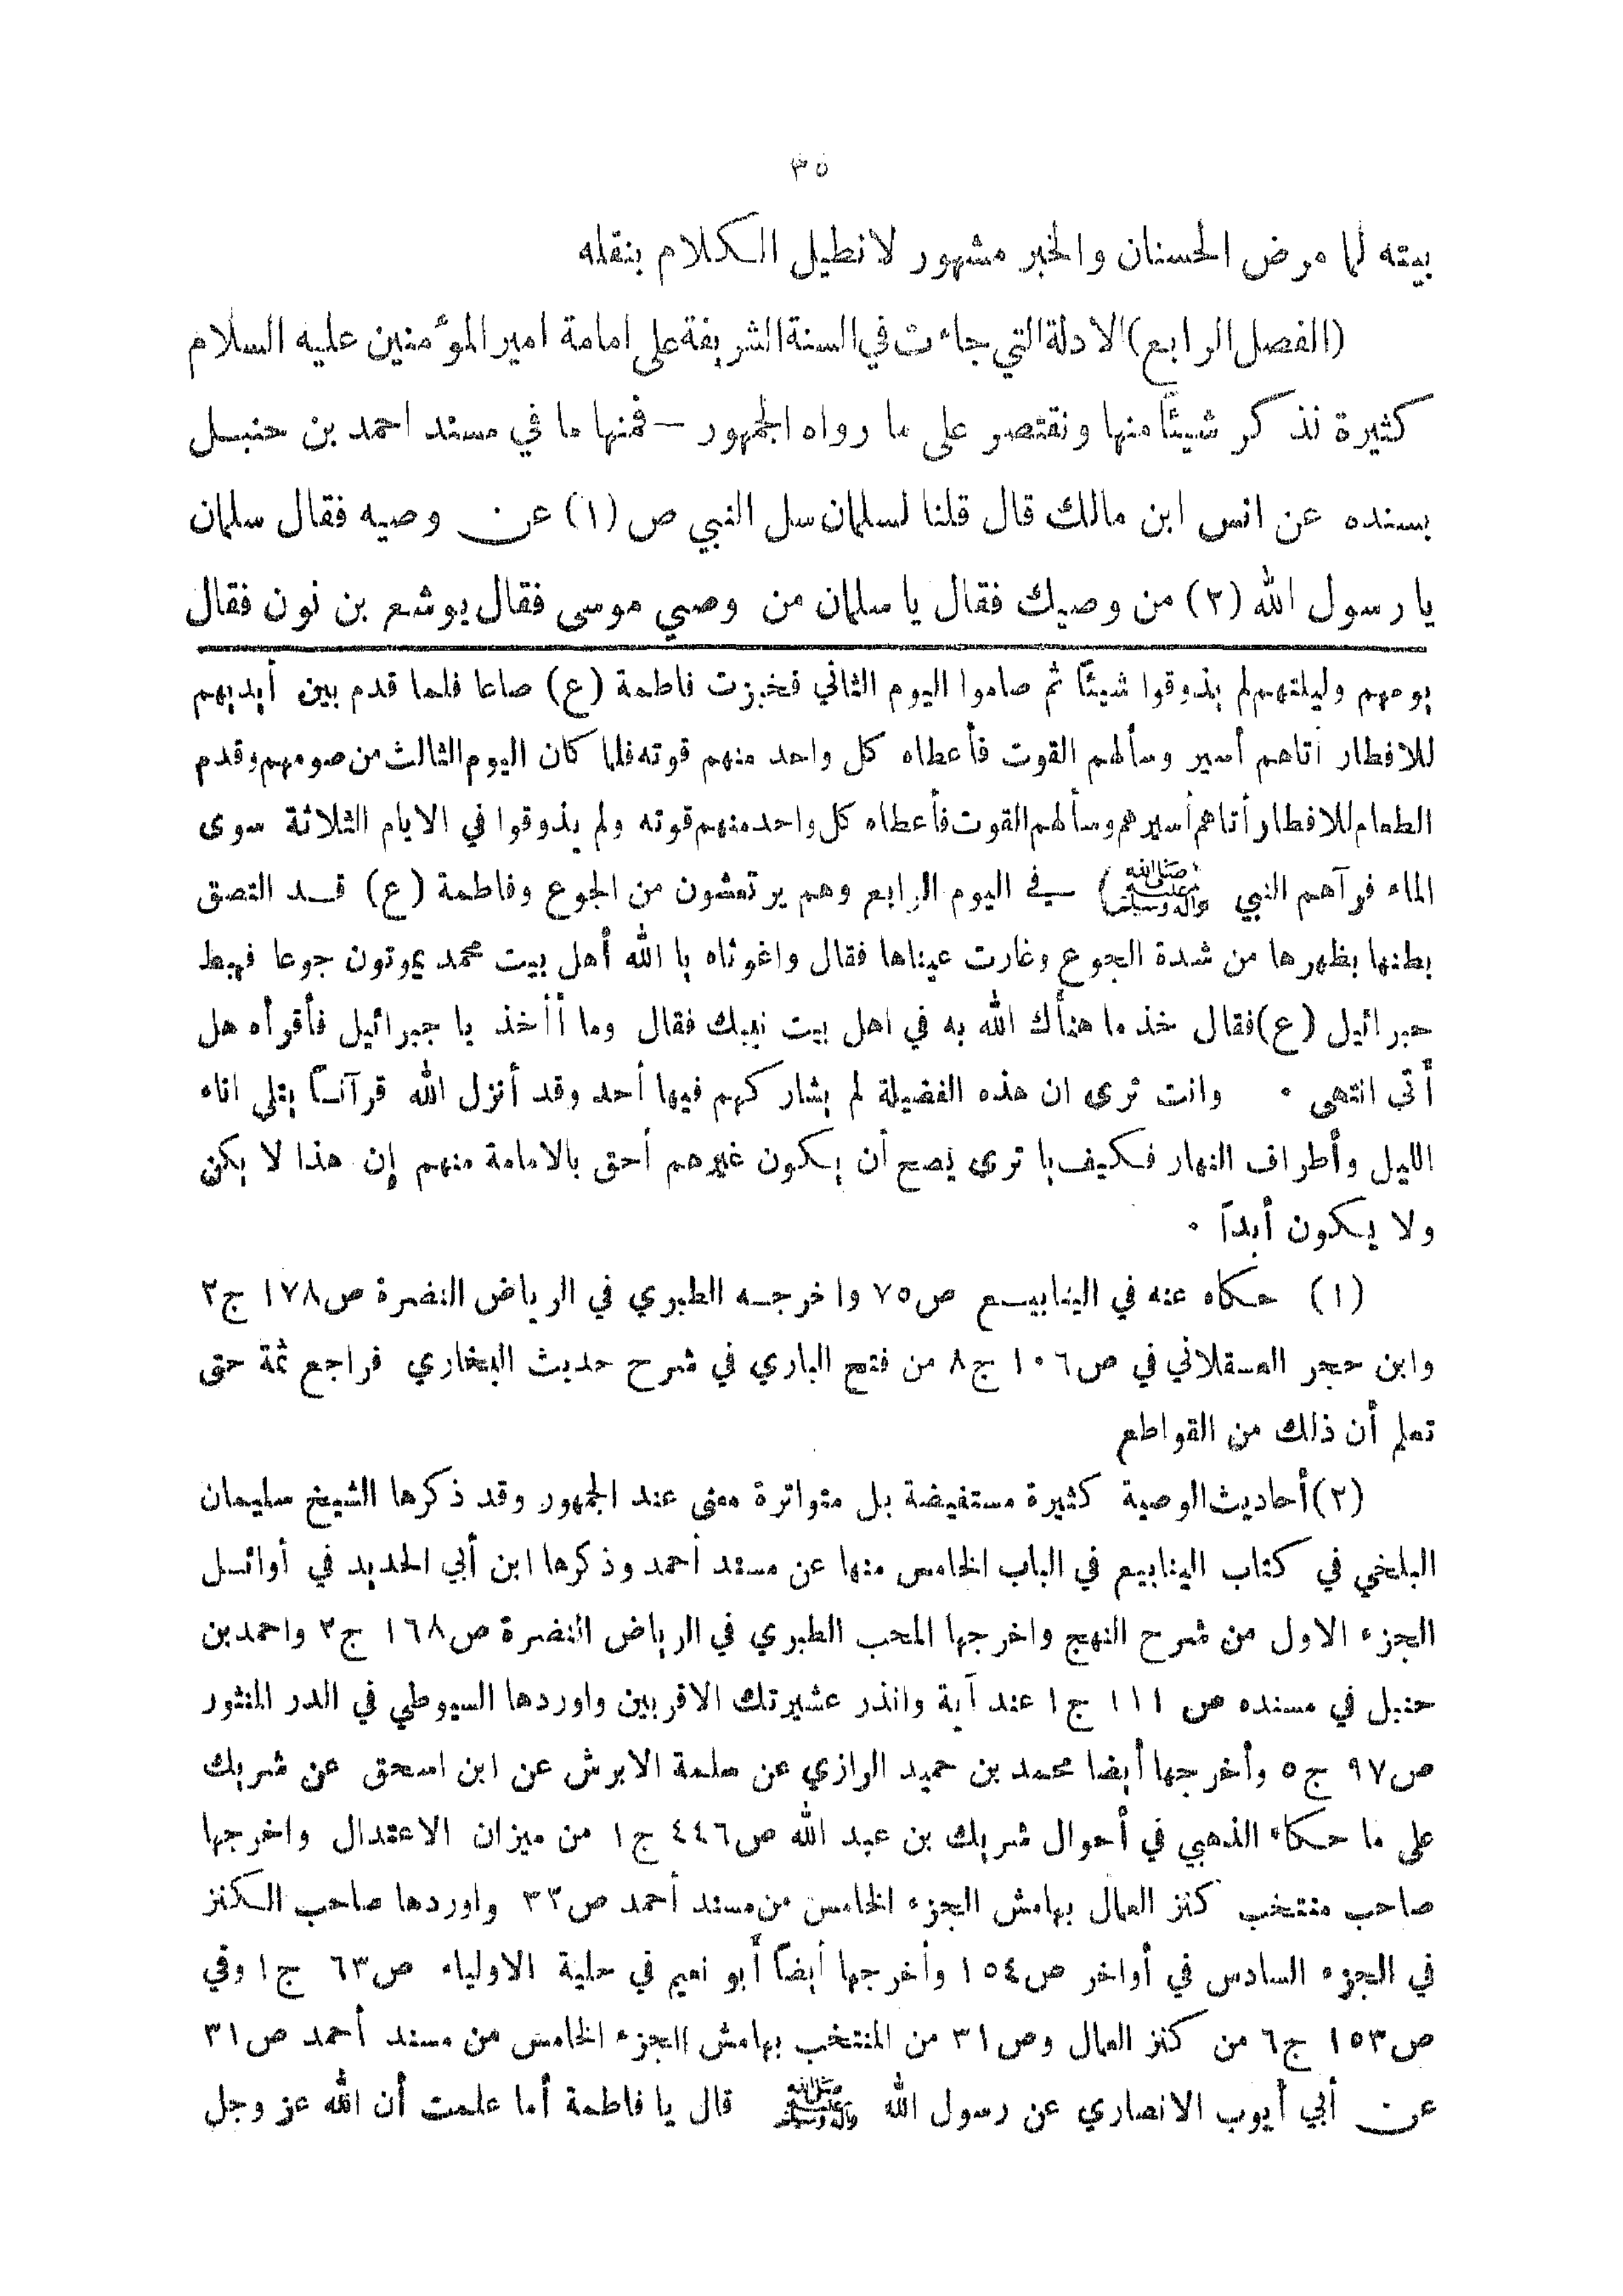 ٣٥
بيته لما مرض الحسنان والخبر مشهور لا نطيل الكلام بنقله
(الفصل الرابع) الادلة التي جاءت في السنة الشريفة على امامة امير المؤمنين عليه السلام
كثيرة نذكر شيئاً منها ونقتصر على ما رواه الجمهور – فمنها ما في مسند احمد بن حنبل
بسنده عن انس ابن مالك قال قلنا لسلمان سل النبي ص (١) عن وصيه فقال سلمان
يا رسول الله (٢) من وصيك فقال يا سلمان من وصي موسى فقال يوشع بن نون فقال
يومهم وليلتهم لم يذوقوا شيئاً ثم صاموا اليوم الثاني فخبزت فاطمة (ع) صاعا فلما قدم بين أيديهم
للافطار أتاهم أسير وسألهم القوت فأعطاه كل واحد منهم قوته فلما كان اليوم الثالث من صومهم وقدم
الطعام للافطار أتاهم أسيرهم وسألهم القوت فأعطاه كل واحد منهم قوته ولم يذوقوا في الايام الثلاثة سوى
الماء فرآهم النبي (صلى الله عليه وآله وسلم) في اليوم الرابع وهم يرتعشون من الجوع وفاطمة (ع) قد التصق
بطنها بظهرها من شدة الجوع وغارت عيناها فقال واغوثاه يا الله أهل بيت محمد يموتون جوعا فهبط
جبرائيل (ع) فقال خذ ما هنأك الله به في اهل بيت نبيك فقال وما أأخذ يا جبرائيل فأقرأه هل
أتى انتهى ٠ وانت ترى ان هذه الفضيلة لم يشاركهم فيها أحد وقد أنزل الله قرآناً يتلى اناء
الليل وأطراف النهار فكيف يا ترى يصح أن يكون غيرهم أحق بالامامة منهم إن هذا لا يكن
ولا يكون أبداً ٠
(١) حكاه عنه في الينابيع ص٧٥ واخرجه الطبري في الرياض النضرة ص١٧٨ ج٢
وابن حجر العسقلاني في ص١٠٦ ج٨ من فتح الباري في شرح حديث البخاري فراجع ثمة حق
تعلم أن ذلك من القواطع
(٢) أحاديث الوصية كثيرة مستفيضة بل متواترة معنى عند الجمهور وقد ذكرها الشيخ سليمان
البلخي في كتاب الينابيع في الباب الخامس منها عن مسند أحمد وذكرها ابن أبي الحديد في أوائل
الجزء الاول من شرح النهج واخرجها المحب الطبري في الرياض النضرة ص١٦٨ ج٢ واحمد بن
حنبل في مسنده ص ١١١ ج١ عند آية وانذر عشيرتك الاقربين واوردها السيوطي في الدر المنثور
ص٩٧ ج٥ وأخرجها أيضا محمد بن حميد الرازي عن سلمة الابرش عن ابن اسحق عن شريك
على ما حكاه الذهبي في أحوال شريك بن عبد الله ص٤٤٦ ج١ من ميزان الاعتدال واخرجها
صاحب منتخب كنز العمال بهامش الجزء الخامس من مسند أحمد ص٣٢ واوردها صاحب الكنز
في الجزء السادس في أواخر ص١٥٤ وأخرجها أيضاً أبو نعيم في حلية الاولياء ص٦٣ ج١ وفي
ص١٥٣ ج٦ من كنز العمال وص٣١ من المنتخب بهامش الجزء الخامس من مسند أحمد ص٣١
عن أبي أيوب الانصاري عن رسول الله صلى الله عليه وآله وسلم قال يا فاطمة أما علمت أن الله عز وجل